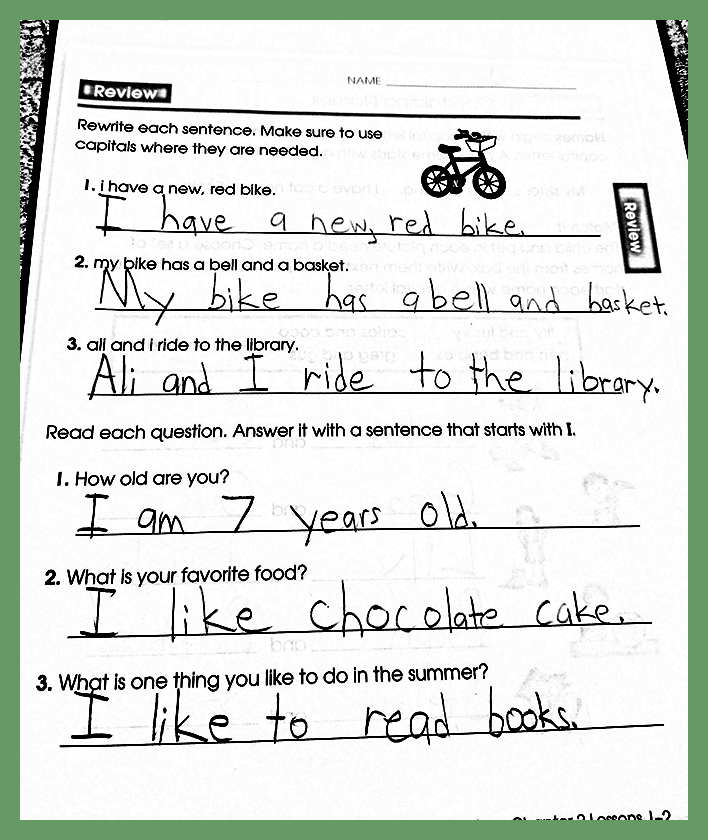 NAME
Review
Rewrite each sentence. Make sure to use
capitals where they are needed.
1. i have a new, red bike.
I have a new, red bike.
Review
2. my bike has a bell and a basket.
My bike has a bell and basket.
3. ali and i ride to the library.
Ali and I ride to the library.
Read each question. Answer it with a sentence that starts with I.
1. How old are you?
I am 7 years old.
2. What is your favorite food?
I like chocolate cake.
3. What is one thing you like to do in the summer?
I like to read books.
Chapter 2 Lessons 1-2